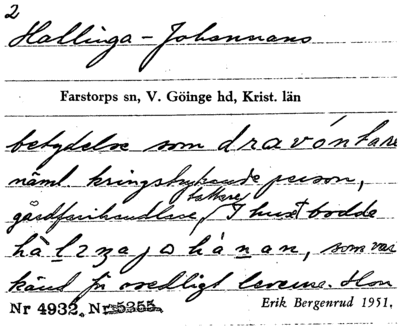 2
Hallinga-Johannans
Farstorps sn, V. Göinge hd, Krist. län
betydelse som dravóntare
näml. kringstrykande person,
tattare
gårdfarihandlare, I huset bodde
hàlznajohànan, som var
känd för osedligt leverne. Hon
Nr 4932. Nr 5355. Erik Bergenrud 1951,